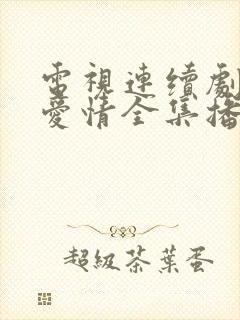 電視連續劇
愛情全集播
超級茶葉蛋